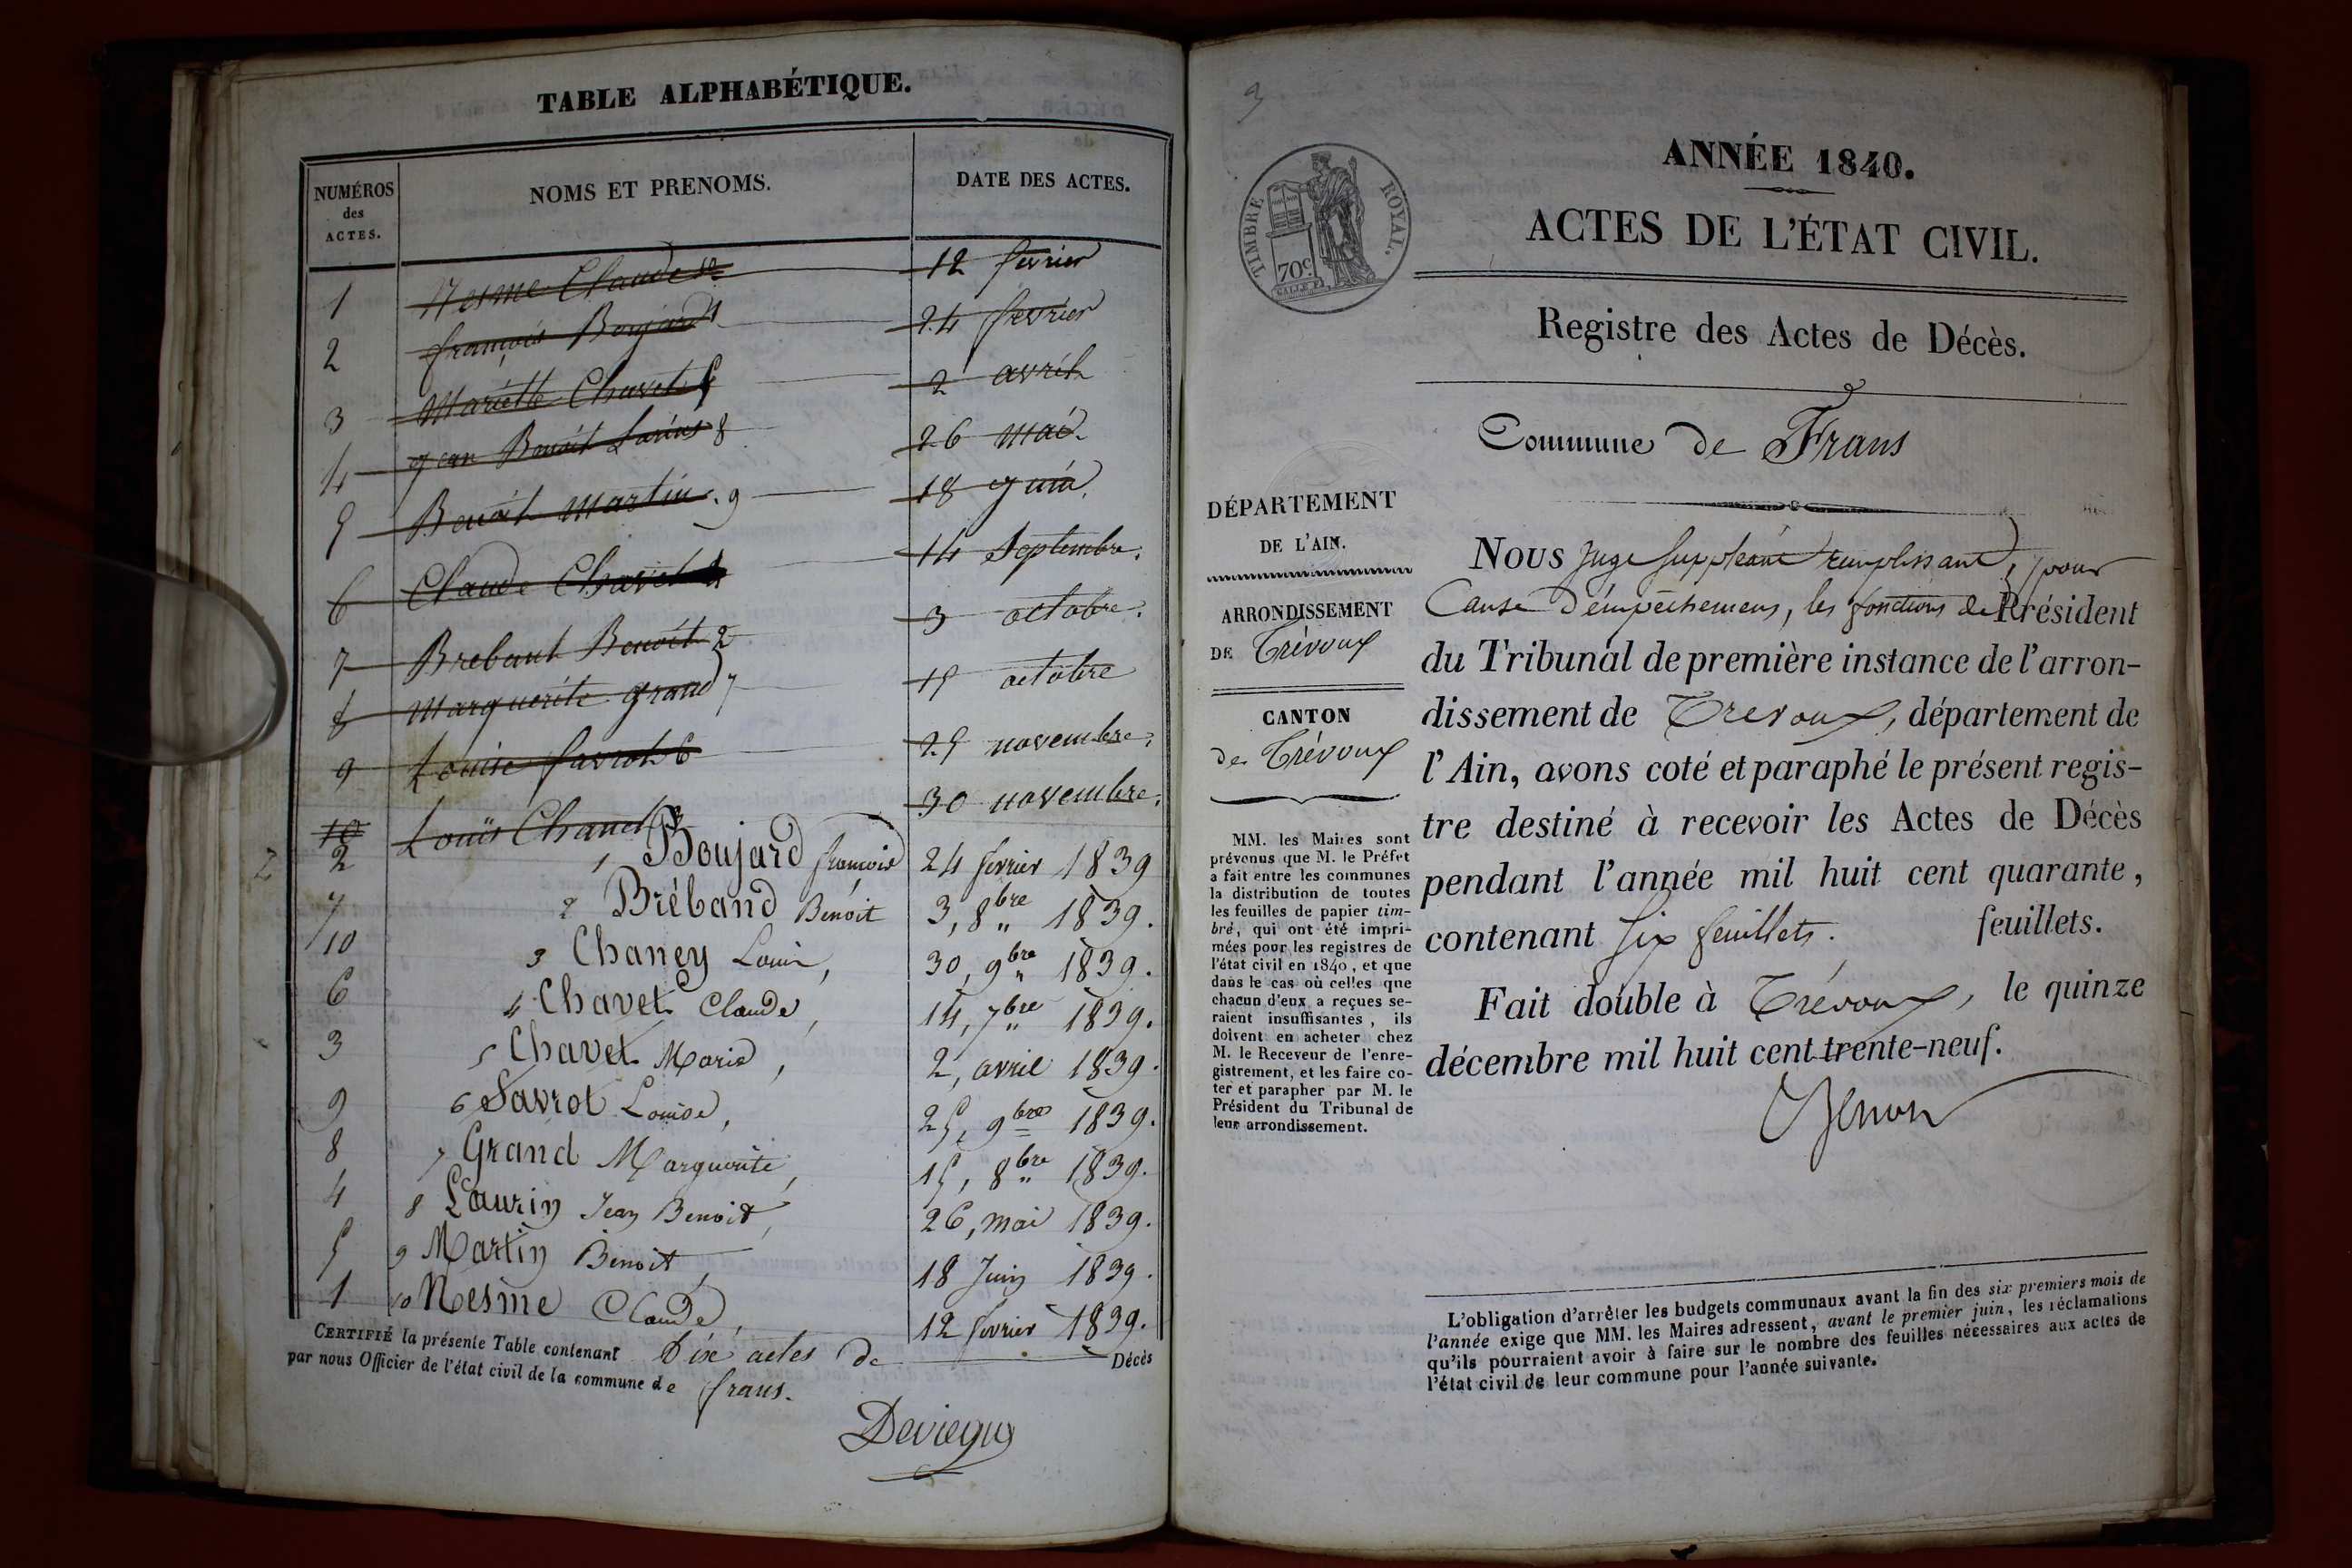 TABLE ALPHABÉTIQUE.
NUMÉROS
des
ACTES.
NOMS ET PRENOMS.
DATE DES ACTES.
1 Nesme Claude 10 12 fevrier
2 françois Boujard 1 24 fevrier
3 Mariette Chavet 5 2 avril
4 Jean Benoit Laurin 8 26 mai.
5 Benoit Martin. 9 18 juin.
6 Claude Chavet 4 14 Septembre.
7 Brebant Benoit 2 3 octobre.
8 Marguerite Grand 7 15 octobre
9 Louise Savrot 6 25 novembre.
10 Louis Chanet 3 30 novembre.
2 1 Boujard françois 24 fevrier 1839
7 2 Bréband Benoit 3, 8bre 1839.
10 3 Chaney Louis, 30, 9bre 1839.
6 4 Chavet Claude, 14, 7bre 1839.
3 5 Chavet Marie, 2, avril 1839.
9 6 Savrot Louise, 25, 9bre 1839.
8 7 Grand Marguerite, 15, 8bre 1839.
4 8 Laurin Jean Benoit, 26, mai 1839.
5 9 Martin Benoit, 18 Juin 1839.
1 10 Nesme Claude, 12 fevrier 1839.
CERTIFIÉ la présente Table contenant Dix actes de Décès
par nous Officier de l'état civil de la commune de frans.
TIMBRE ROYAL.
70c.
ANNÉE 1840.
ACTES DE L'ÉTAT CIVIL.
Registre des Actes de Décès.
Commune de Frans
DÉPARTEMENT
DE L'AIN.
ARRONDISSEMENT
DE Trévoux
CANTON
de Trévoux
MM. les Maires sont
prévenus que M. le Préfet
a fait entre les communes
la distribution de toutes
les feuilles de papier tim-
bré, qui ont été impri-
mées pour les registres de
l'état civil en 1840, et que
dans le cas où celles que
chacun d'eux a reçues se-
raient insuffisantes, ils
doivent en acheter chez
M. le Receveur de l'enre-
gistrement, et les faire co-
ter et parapher par M. le
Président du Tribunal de
leur arrondissement.
NOUS Juge suppléant remplissant, pour
Cause d'empêchemens, les fonctions de Président
du Tribunal de première instance de l'arron-
dissement de Trevoux, département de
l'Ain, avons coté et paraphé le présent regis-
tre destiné à recevoir les Actes de Décès
pendant l'année mil huit cent quarante,
contenant six feuillets. feuillets.
Fait double à Trévoux, le quinze
décembre mil huit cent trente-neuf.
L'obligation d'arrêter les budgets communaux avant la fin des six premiers mois de
l'année exige que MM. les Maires adressent, avant le premier juin, les réclamations
qu'ils pourraient avoir à faire sur le nombre des feuilles nécessaires aux actes de
l'état civil de leur commune pour l'année suivante.